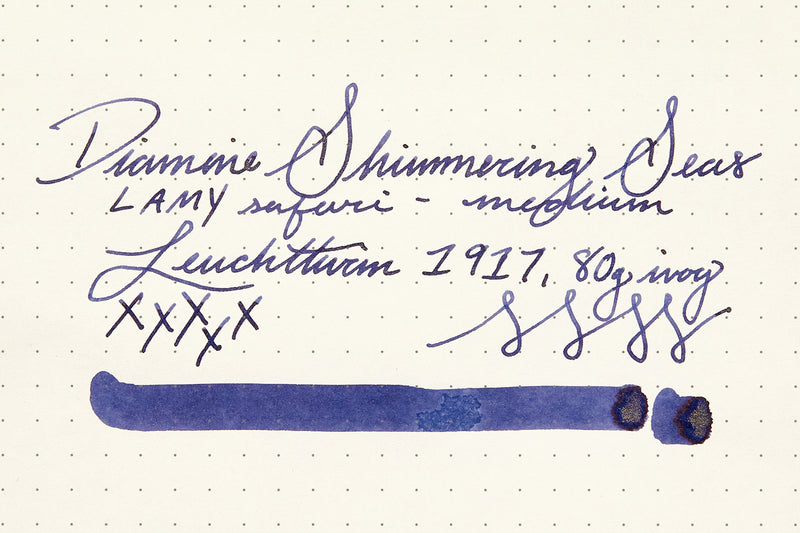 Diamine Shimmering Seas
LAMY safari - medium
Leuchtturm 1917, 80g ivory
XXXXX